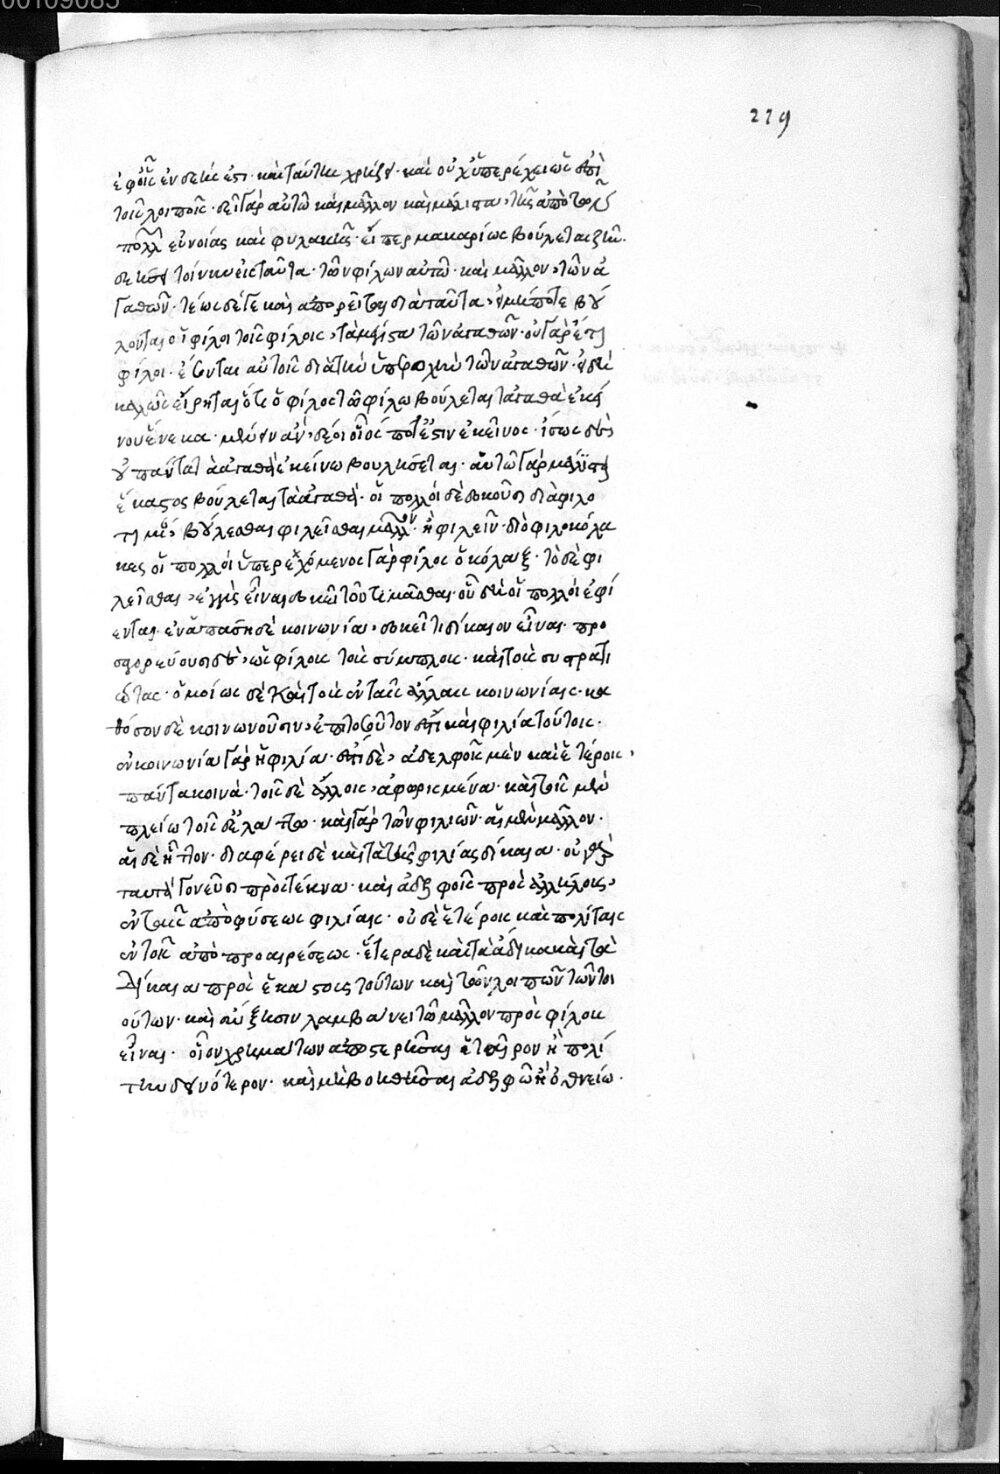 00109085
219
ἐφοῖς ἐνδεής ἐστι· καὶ ταύτης χρήζει· καὶ οὐχ ὑπερέχει ὡς ἐπὶ
τοῖς λοιποῖς· δεῖ γὰρ αὐτῶ καὶ μᾶλλον καὶ μάλιστα, τῆς ἀπὸ τῶν
πολλῶν εὐνοίας καὶ φυλακῆς· εἴπερ μακαρίως βούλεται ζῆν.
δεῖ τοίνυν εἰς ταῦτα· τῶν φίλων αὐτῶ· καὶ μᾶλλον, τῶν ἀ
γαθῶν· τέως δέ γε καὶ ἀπορεῖται διὰ ταῦτα, μήποτε βού
λονται οἱ φίλοι τοῖς φίλοις, τὰ μέγιστα τῶν ἀγαθῶν· οὐ γὰρ ἔτι
φίλοι· ἔσονται αὐτοῖς διὰ τὴν ὑπεροχὴν τῶν ἀγαθῶν· εἰ δὴ
καλῶς εἴρηται ὅτι ὁ φίλος τῶ φίλω βούλεται τἀγαθὰ ἐκεί
νου ἕνεκα· μένειν ἂν, δέοι οἷός ποτέ ἐστιν ἐκεῖνος· ἴσως δ'
οὐ πάντα τὰ ἀγαθὰ ἐκείνω βουλήσεται· αὑτῶ γὰρ μάλιστα
ἕκαστος βούλεται τὰ ἀγαθά· οἱ πολλοὶ δὲ δοκοῦσι διὰ φιλο
τιμίαν, βούλεσθαι φιλεῖσθαι μᾶλλον· ἢ φιλεῖν· διὸ φιλοκόλα
κες οἱ πολλοί ὑπερεχόμενος γὰρ φίλος ὁ κόλαξ· τὸ δὲ φι
λεῖσθαι, ἐγγὺς εἶναι δοκεῖ τοῦ τιμᾶσθαι· οὗ δὴ οἱ πολλοὶ ἐφί
ενται· ἐν ἁπάσῃ δὲ κοινωνία, δοκεῖ τι δίκαιον εἶναι· προ
σαγορεύουσι δ', ὡς φίλους τοὺς σύμπλους· καὶ τοὺς συστρατι
ώτας· ὁμοίως δὲ καὶ τοὺς ἐν ταῖς ἄλλαις κοινωνίαις· κα
θόσον δὲ κοινωνοῦσιν, ἐπὶ τοσοῦτόν ἐστι καὶ φιλία τούτοις·
ἐν κοινωνία γὰρ ἡ φιλία· ἔστι δὲ, ἀδελφοῖς μὲν καὶ ἑταίροις,
πάντα κοινά· τοῖς δὲ ἄλλοις, ἀφωρισμένα· καὶ τοῖς μὲν
πλείω τοῖς δ' ἐλάττω· καὶ γὰρ τῶν φιλιῶν· αἱ μὲν μᾶλλον·
αἱ δὲ ἧττον· διαφέρει δὲ καὶ τὰ τῆς φιλίας δίκαια· οὐ γὰρ
ταυτὰ γονεῦσι πρὸς τέκνα· καὶ ἀδελφοῖς πρὸς ἀλλήλους,
ἐν ταῖς ἀπὸ φύσεως φιλίαις· οὐδὲ ἑταίροις καὶ πολίταις
ἐν τοῖς ἀπὸ προαιρέσεως· ἕτερα δὲ καὶ τὰ ἄδικα καὶ τὰ
δίκαια πρὸς ἑκάστους τούτων καὶ τῶν λοιπῶν τῶν τοι
ούτων· καὶ αὔξησιν λαμβάνει τῶ μᾶλλον πρὸς φίλους
εἶναι· οἷον χρημάτων ἀποστερῆσαι ἑταῖρον ἢ πολί
την δεινότερον· καὶ μὴ βοηθῆσαι ἀδελφῶ ἢ ὀθνείω.